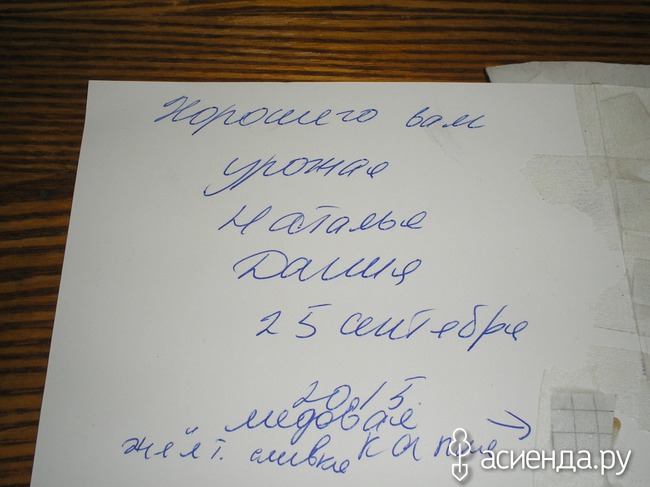 Хорошего вам
урожая
Наталья
Дания
25 сентября
2015
медовая
жёлт. сливка капля →
асиенда.ру